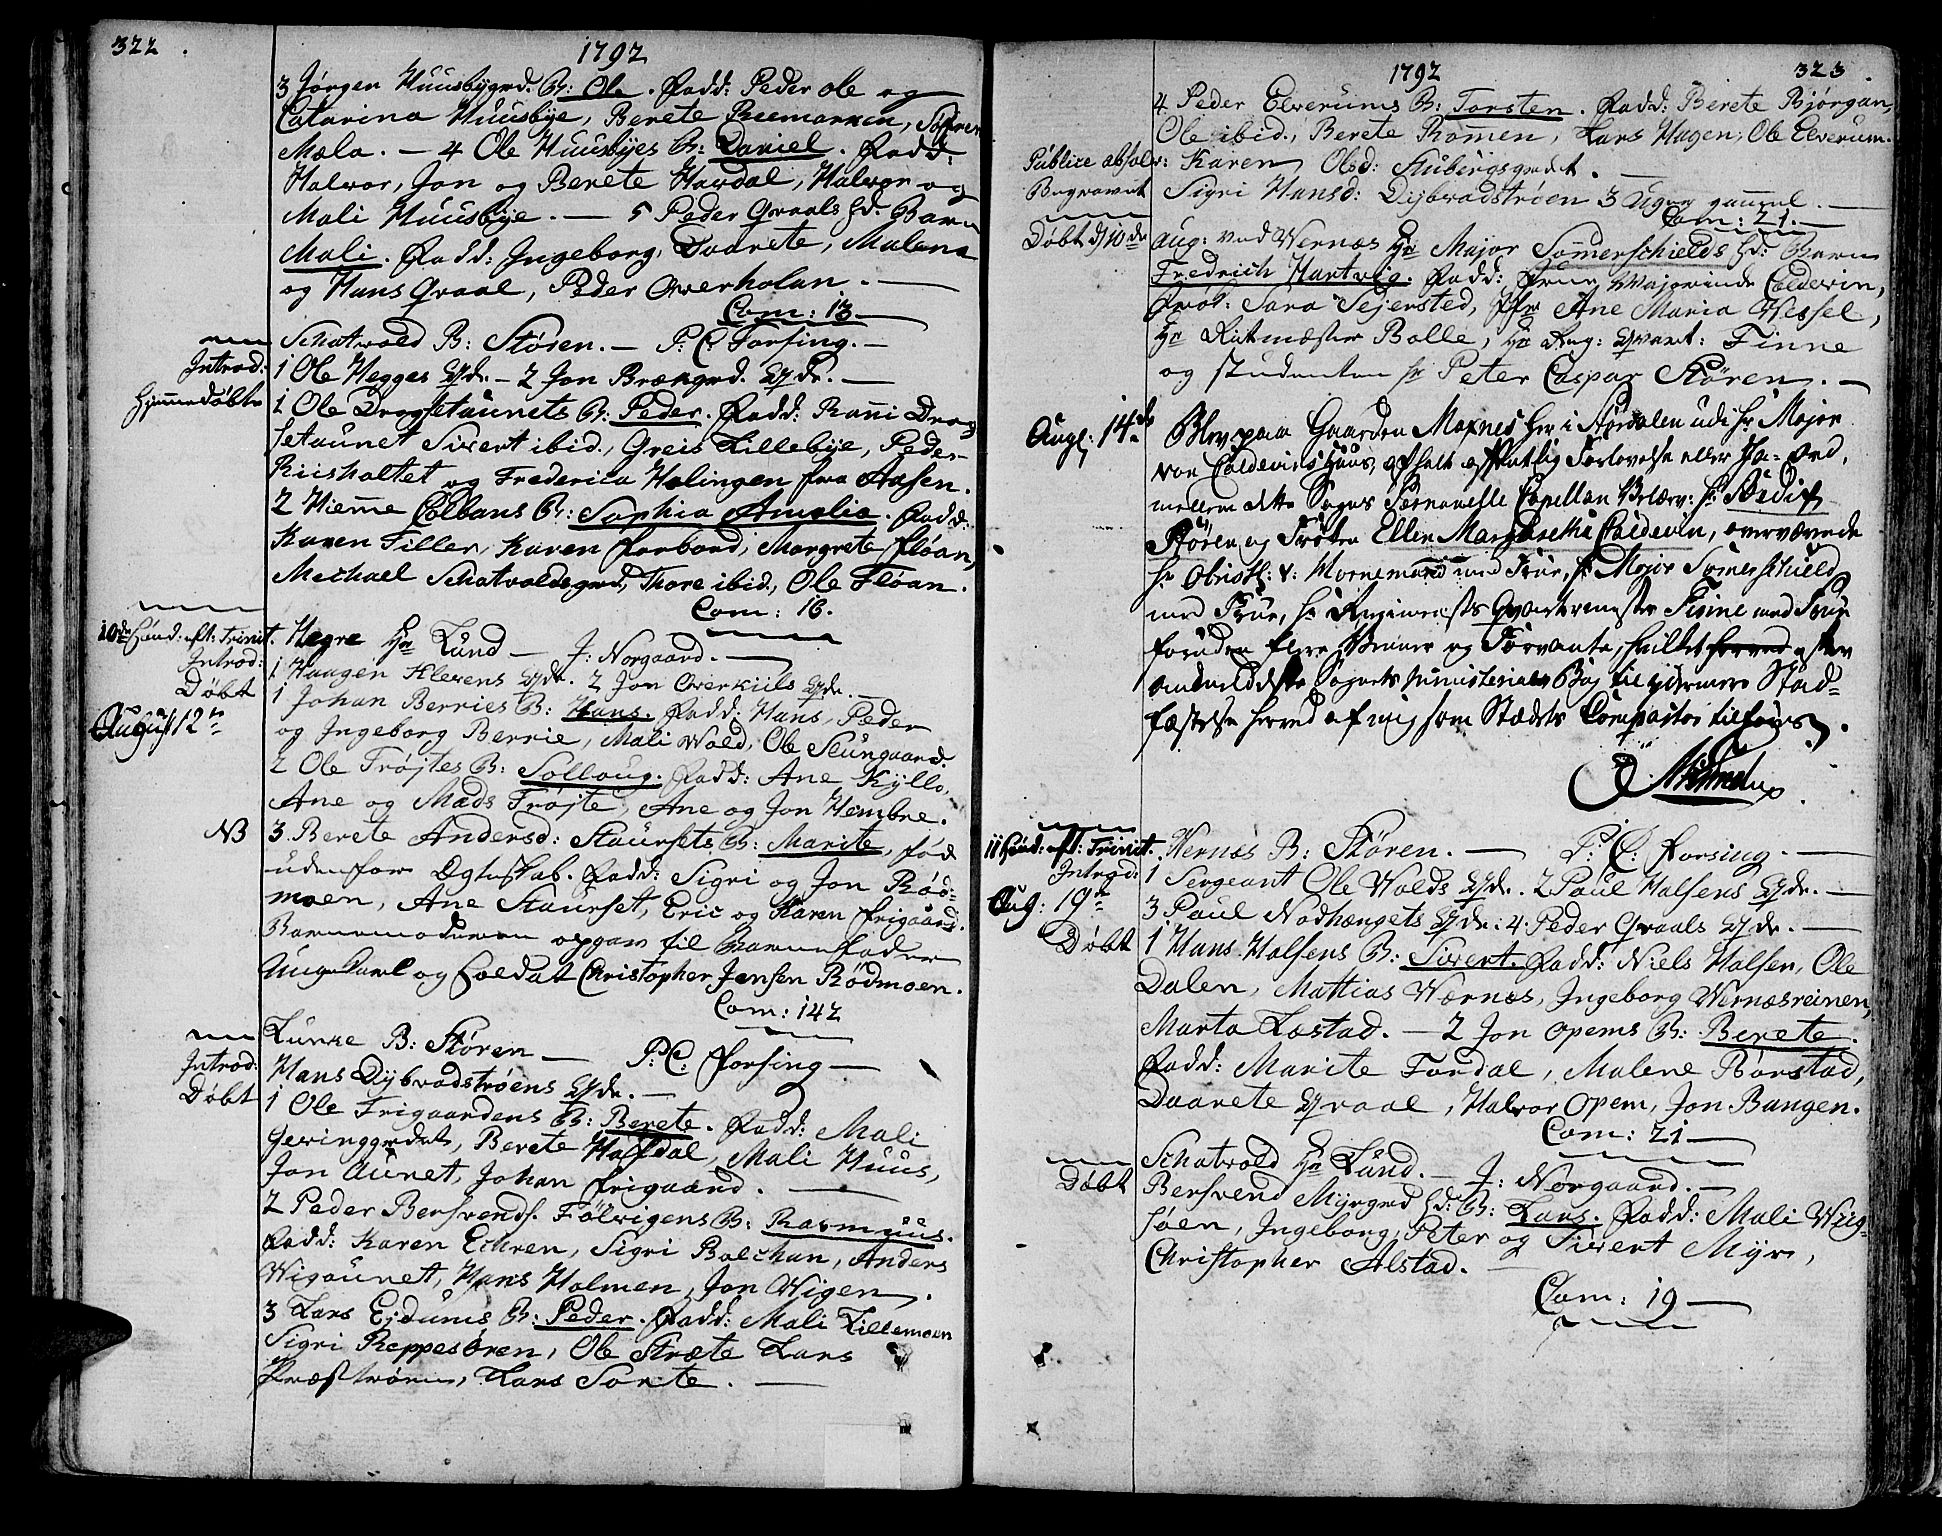 322.
1792
3 Jørgen Huusbygrd. B: Ole. Fadd: Peder ole og
Catarina Huusbye, Berete Reemarken, Søfren
Mæla. — 4 Ole Huusbyes B: Daniel. Fadd:
Halvor, Jon og Berete Havdal, Halvor og
Mali Huusbye. — 5 Peder Graals hd. Barn
Mali. Fadd: Ingeborg, Daarete, Malena
og Hans Graal, Peder Overholan. —
Com: 13 —
Schatvold B: Stören. — P: C: Forsing. —
Introd: 1 Ole Hegges Qde. — 2 Jon Brækgrd. Qde. —
Hjemmedöbte 1 Ole Drogsetaunets B: Peder. Fadd: Ranni Drog
setaunet Sivert ibid., Greis Lillebye, Peder
Riisholtet og Frederica Holingen fra Aasen.
2 Hemme Colbans B: Sophia Amalia. Fadd:
Karen Tiller, Karen Forbord, Margrete Flöan,
Michael Schatvoldsgrd, Thore ibid., Ole Flöan.
Com: 16.
10de Sönd: eft: Trinit. Hegre Hr Lund — J: Norgaard. —
Introd: 1 Haagen Klevens Qde. 2 Jon Overkiils Qde. —
Döbt 1 Johan Berries B: Hans. Fadd: Hans, Peder
August 12te og Ingeborg Berrie, Mali Wold, Ole Leungaard.
2 Ole Tröjtes B: Solloug. Fadd: Ane Kyllo,
Ane og Mads Tröjte, Ane og Jon Hembre.
NB 3 Berete Andersd: Staursets B: Marite, föd
udenfor Ægteskab. Fadd: Sigri og Jon Röd=
moen, Ane Staurset, Eric og Karen Frigaard.
Barnemoderen opgav til Barnefader
Unge Carl og Soldat Christopher Jensen Rödmoen.
Com: 142
Lunke B: Stören — P: C: Forsing —
Introd: Hans Dybvadströens Qde. —
Döbt 1 Ole Frigaardens B: Berete. Fadd: Mali
Gevinggrdet, Berete Hoffdal, Mali Huus,
Jon Aunet, Johan Frigaard. —
2 Peder Bersvends. Fölvigens B: Rasmuus.
Fadd: Karen Echren, Sigri Balchan, Anders
Wigaunet, Hans Holmen, Jon Wigen.
3 Lars Ejdums B: Peder. Fadd: Mali Lillemoen
Sigri Reppesören, Ole Stræte Lars
Præstmoen, Lars Sorte. —
1792
323.
4 Peder Elverums B: Torsten. Fadd: Berete Bjørgan,
Ole ibid., Berete Rommen, Lars Hagen, Ole Elverum.
Publice absolv: Karen Olsd: Stubergsgrdet. —
Begravet Sigri Hansd: Dybvadströen 3 Uger gammel. —
Com: 21. —
Döbt d 10de Aug: ved Wernæs Hr Major Sommerschields hd: Barn
Fredrich Hartvig. Fadd: Frue Majorinde Coldevin,
Fröl: Sara Sejersted, Jfr Ane Maria Wessel,
Hr Ritmester Bolle, Hr Reg: Qvart: Finne
og studenten Hr Peter Caspar Stören. —
Aug: 14de Blev paa Gaarden Moxnes her i Stördalen udi Hr Major
von Coldevins Huus, afholt offentlig Forlovelse eller Ja-ord,
mellem dette Sogns Personelle Capellan Velærv: Hr Budix
Stören og Fröken Ellen Margarethe Coldevin, overværende
Hr Obristl: v: Mornemand med Frue, Hr Major Somerschield
med Frue, Hr Regiments Qvarteermester Finne med Frue
foruden flere Venner og Forvante, hvilket herved efter
anden dette Sognets ministeriales Bog til ydermere Stad=
fæstelse herved af mig som Stædets Compastor tilføies.
11 Sönd: eft: Trinit. Wernæs B: Stören. — P: C: Forsing. —
Introd: 1 Sergeant Ole Wolds Qde. 2 Paul Halsens Qde. —
Aug: 19de 3 Paul Nødhængets Qde: 4 Peder Graals Qde. —
Döbt 1 Hans Halsens B: Sivert. Fadd: Niels Halsen, Ole
Dalen, Mattias Wærnes, Ingeborg Wernæsreinen,
Marta Læstad. — 2 Jon Opems B: Berete.
Fadd: Marite Fordal, Malene Börstad,
Daarete Graal, Halvor Opem, Jon Bangen.
Com: 21 —
Schatvold Hr Lund. — J: Norgaard. —
Döbt Bersvend Myrgrd hd: B: Lars. Fadd: Mali Wiig=
söen, Ingeborg, Peter og Sivert Myr,
Christopher Alstad. —
Com: 19 —